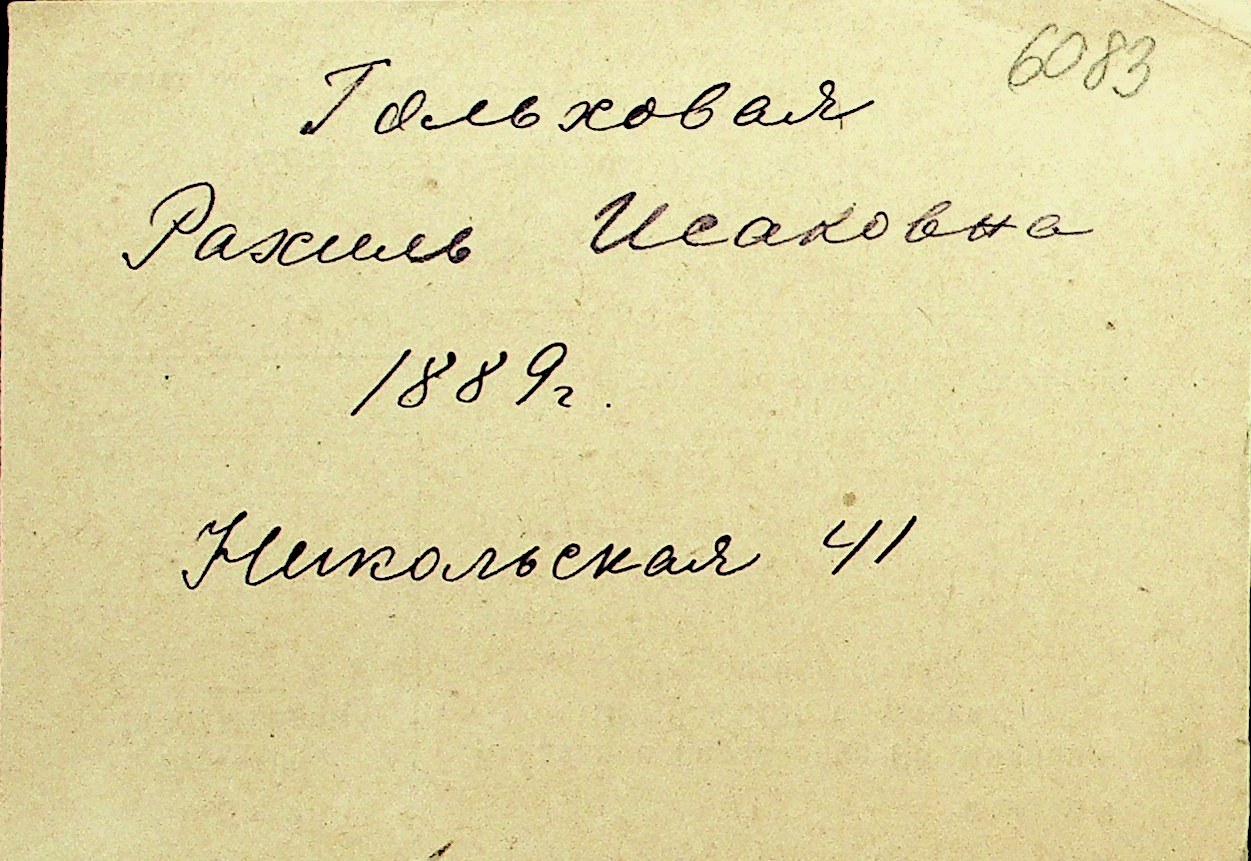 6083
Гольховая
Рахиль Исаковна
1889г.
Никольская 41